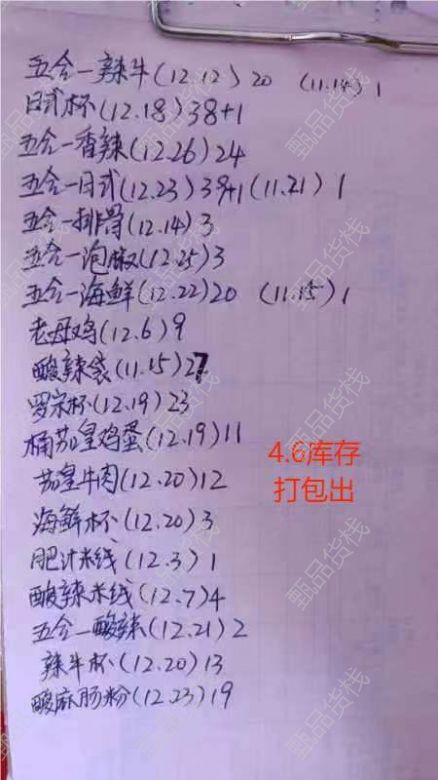 五合一辣牛(12.12)20 (11.14)1
日式杯(12.18)38+1
五合一香辣(12.26)24
五合一日式(12.23)39+1(11.21)1
五合一排骨(12.14)3
五合一泡椒(12.25)3
五合一海鲜(12.22)20 (11.15)1
老母鸡(12.6)9
酸辣袋(11.15)27
罗宋杯(12.19)23
桶茄皇鸡蛋(12.19)11
茄皇牛肉(12.20)12
海鲜杯(12.20)3
肥汁米线(12.3)1
酸辣米线(12.7)4
五合一酸辣(12.21)2
辣牛杯(12.20)13
酸麻肠粉(12.23)19
4.6库存
打包出
甄品货栈